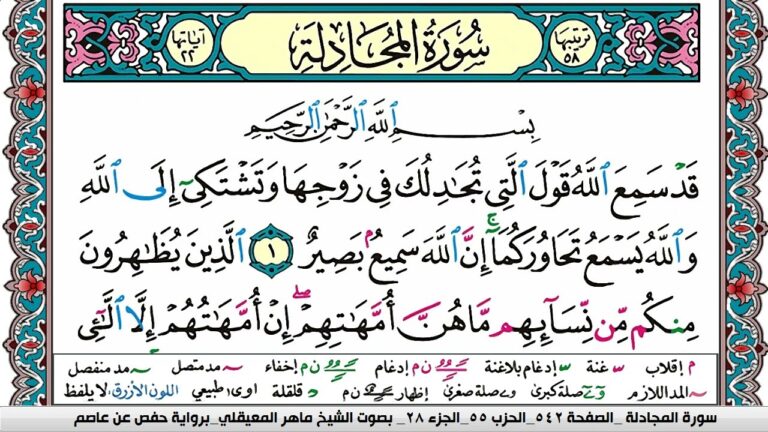 ترتيبها ٥٨ سُورَةُ المُجَادلة آياتها ٢٢
بِسْمِ ٱللَّهِ ٱلرَّحْمَٰنِ ٱلرَّحِيمِ
قَدْ سَمِعَ ٱللَّهُ قَوْلَ ٱلَّتِي تُجَٰدِلُكَ فِي زَوْجِهَا وَتَشْتَكِيٓ إِلَى ٱللَّهِ
وَٱللَّهُ يَسْمَعُ تَحَاوُرَكُمَآ ۚ إِنَّ ٱللَّهَ سَمِيعٌۢ بَصِيرٌ ١ ٱلَّذِينَ يُظَٰهِرُونَ
مِنكُم مِّن نِّسَآئِهِم مَّا هُنَّ أُمَّهَٰتِهِمْ ۖ إِنْ أُمَّهَٰتُهُمْ إِلَّا ٱلَّٰٓـِٔي
م إقلاب غنة إدغام بلاغنة ن م إدغام ن م إخفاء مد متصل مد منفصل
المد اللازم صلة كبرى صلة صغرى إظهار ن م قلقلة اوى طبيعي اللون الأزرق لا يلفظ
سورة المجادلة _الصفحة ٥٤٢_الحزب ٥٥_الجزء ٢٨_ بصوت الشيخ ماهر المعيقلي_برواية حفص عن عاصم